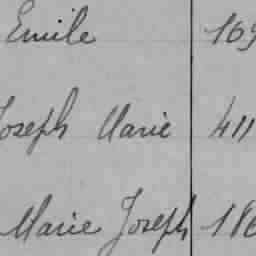 Emile 169
Joseph Marie 411
Marie Joseph 186